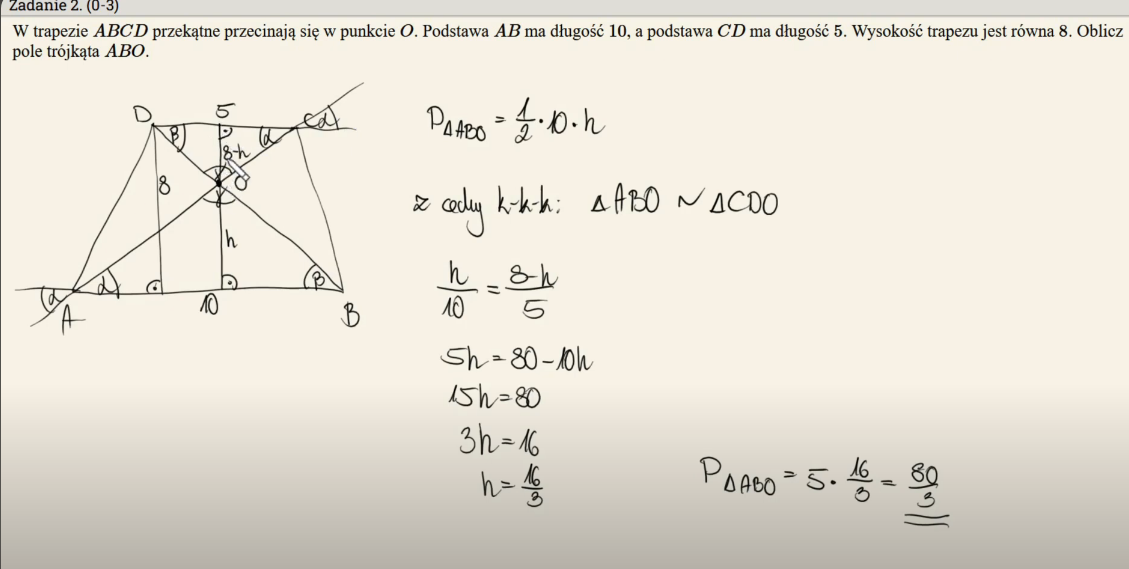 Zadanie 2. (0-3)
W trapezie ABCD przekątne przecinają się w punkcie O. Podstawa AB ma długość 10, a podstawa CD ma długość 5. Wysokość trapezu jest równa 8. Oblicz
pole trójkąta ABO.
D 5 C α
β α
8-h
8 O
γ
h
α α β
A 10 B
P△ABO = 1/2 · 10 · h
z cechy k-k-k: △ABO ~ △CDO
h/10 = 8-h/5
5h = 80 - 10h
15h = 80
3h = 16
h = 16/3
P△ABO = 5 · 16/3 = 80/3